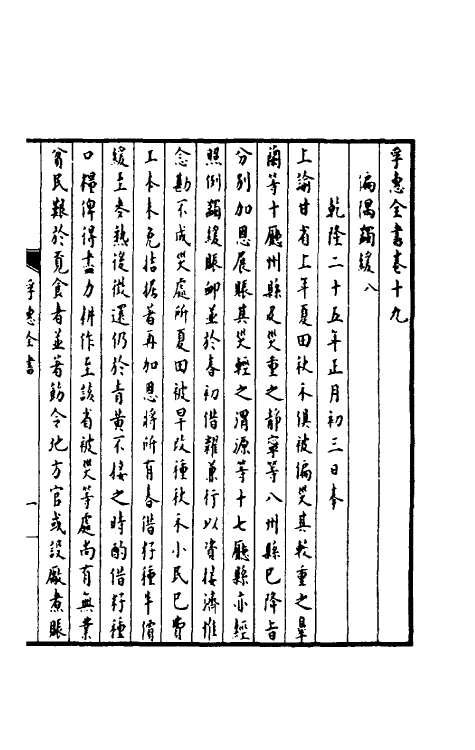 孚惠全書卷十九
偏隅蠲緩八
乾隆二十五年正月初三日奉
上諭甘省上年夏田秋禾俱被偏災其較重之皐
蘭等十廳州縣及災重之靜寧等八州縣已降旨
分別加恩展賑其災輕之渭源等十七廳縣亦經
照例蠲緩賑卹並於春初借糶兼行以資接濟惟
念勘不成災處所夏田被旱改種秋禾小民已費
工本未免拮据著再加恩將所有春借籽種牛價
緩至麥熟後徵還仍於青黃不接之時酌借籽種
口糧俾得盡力耕作至該省被災等處尚有無業
窮民艱於覓食者並著飭令地方官或設廠煮賑
孚惠全書
一